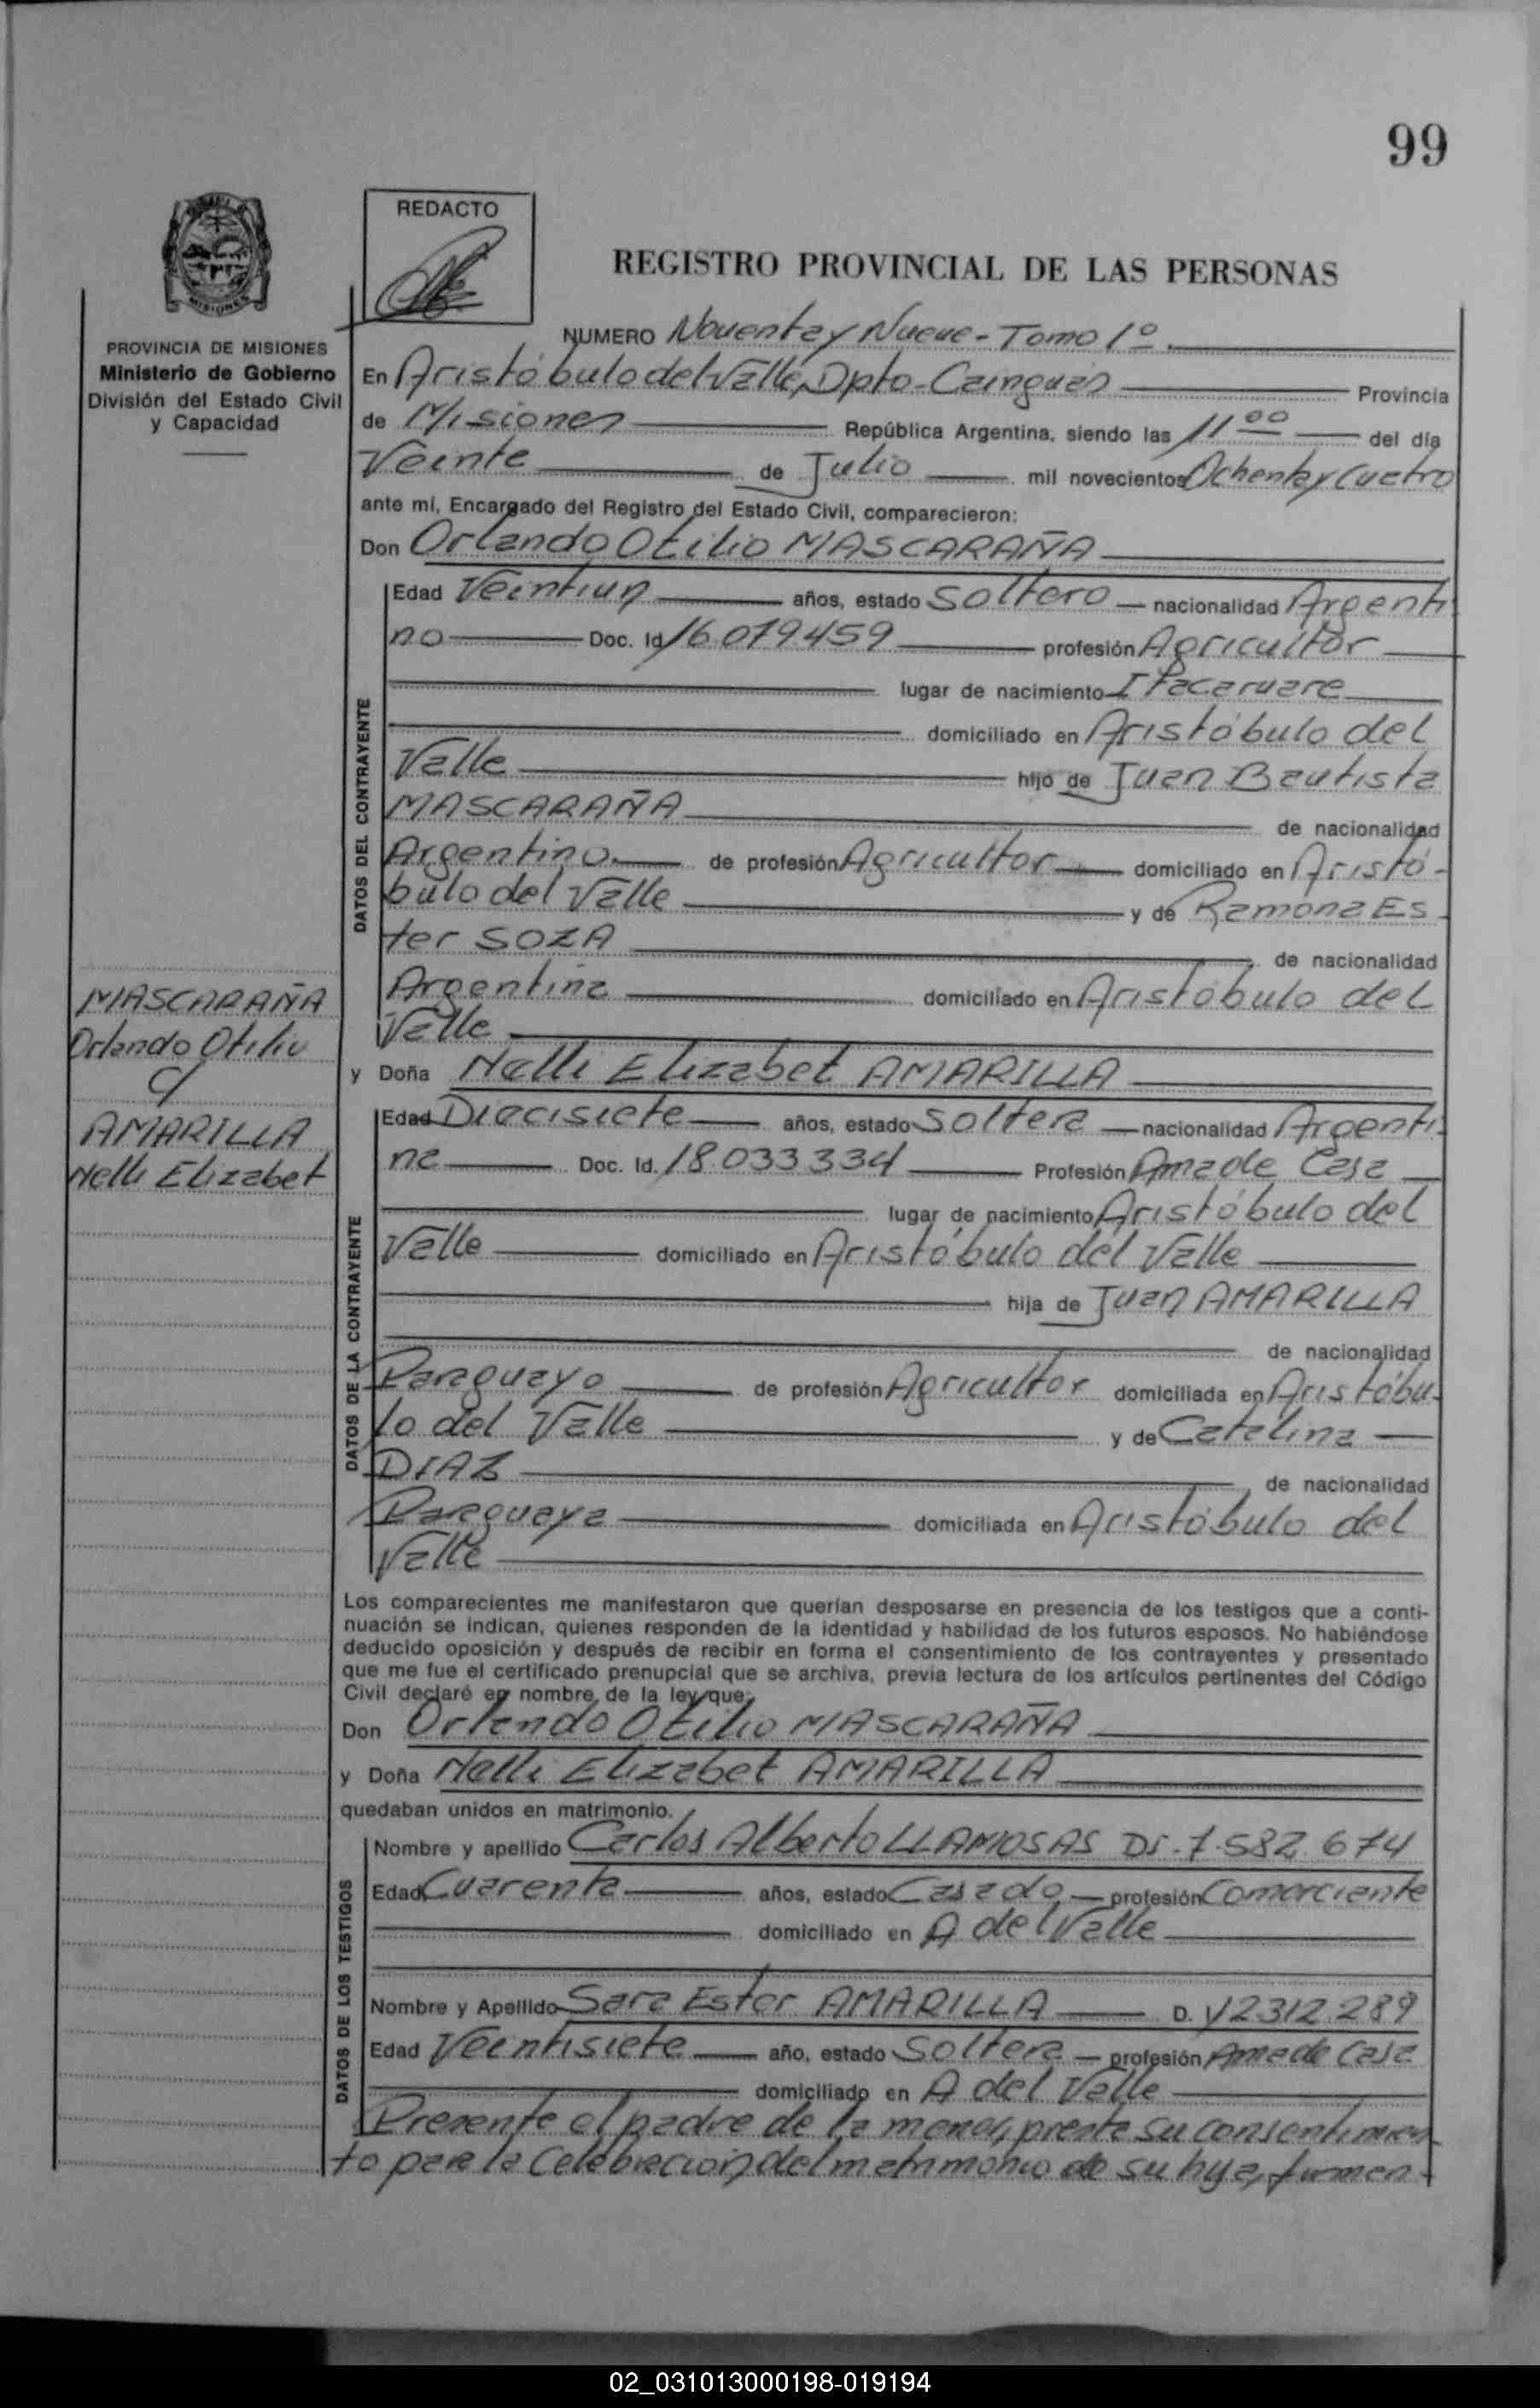 99
REDACTO
REGISTRO PROVINCIAL DE LAS PERSONAS
MISIONES
PROVINCIA DE MISIONES
Ministerio de Gobierno
División del Estado Civil
y Capacidad
NUMERO Noventa y Nueve - Tomo 1º
En Aristóbulo del Valle, Dpto - Cainguás Provincia
de Misiones República Argentina, siendo las 11 00 del día
Veinte de Julio mil novecientos Ochenta y Cuatro
ante mí, Encargado del Registro del Estado Civil, comparecieron:
Don Orlando Otilio MASCARAÑA
DATOS DEL CONTRAYENTE
Edad Veintiun años, estado Soltero nacionalidad Argenti
no Doc. Id 16.079.459 profesión Agricultor
lugar de nacimiento Itacaruare
domiciliado en Aristóbulo del
Valle hijo de Juan Bautista
MASCARAÑA de nacionalidad
Argentino de profesión Agricultor domiciliado en Aristó-
bulo del Valle y de Ramona Es
ter SOZA de nacionalidad
Argentina domiciliado en Aristóbulo del
Valle
MASCARAÑA
Orlando Otilio
c/
AMARILLA
Nelli Elizabet
y Doña Nelli Elizabet AMARILLA
DATOS DE LA CONTRAYENTE
Edad Diecisiete años, estado Soltera nacionalidad Argenti
na Doc. Id. 18.033.334 Profesión Ama de Casa
lugar de nacimiento Aristóbulo del
Valle domiciliado en Aristóbulo del Valle
hija de Juan AMARILLA
de nacionalidad
Paraguayo de profesión Agricultor domiciliada en Aristóbu-
lo del Valle y de Catalina
DIAZ de nacionalidad
Paraguaya domiciliada en Aristóbulo del
Valle
Los comparecientes me manifestaron que querían desposarse en presencia de los testigos que a conti-
nuación se indican, quienes responden de la identidad y habilidad de los futuros esposos. No habiéndose
deducido oposición y después de recibir en forma el consentimiento de los contrayentes y presentado
que me fue el certificado prenupcial que se archiva, previa lectura de los artículos pertinentes del Código
Civil declaré en nombre de la ley que:
Don Orlando Otilio MASCARAÑA
y Doña Nelli Elizabet AMARILLA
quedaban unidos en matrimonio.
DATOS DE LOS TESTIGOS
Nombre y apellido Carlos Alberto LLAMOSAS DI. 7.582.674
Edad Cuarenta años, estado Casado profesión Comerciante
domiciliado en A del Valle
Nombre y Apellido Sara Ester AMARILLA D. 12312.289
Edad Veintisiete año, estado Soltera profesión Ama de Casa
domiciliado en A del Valle
Presente el padre de la menor, presta su consentimien
to para la Celebración del matrimonio de su hija, firman
02_031013000198-019194